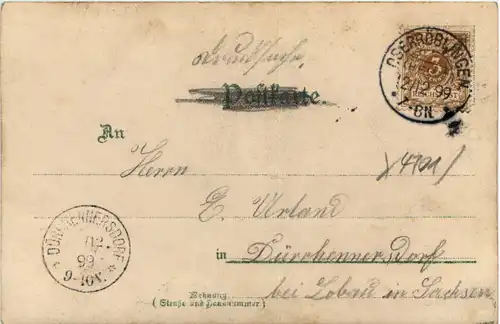 Drucksache
Postkarte
OBERRÖBLINGEN
99
7-8N.
3
An
Herrn
x4791/
E. Urland
in Dürrhennersdorf
bei Löbau in Sachsen
DÜRRHENNERSDORF
12
99
9-10V.
Wohnung
(Straße und Hausnummer)